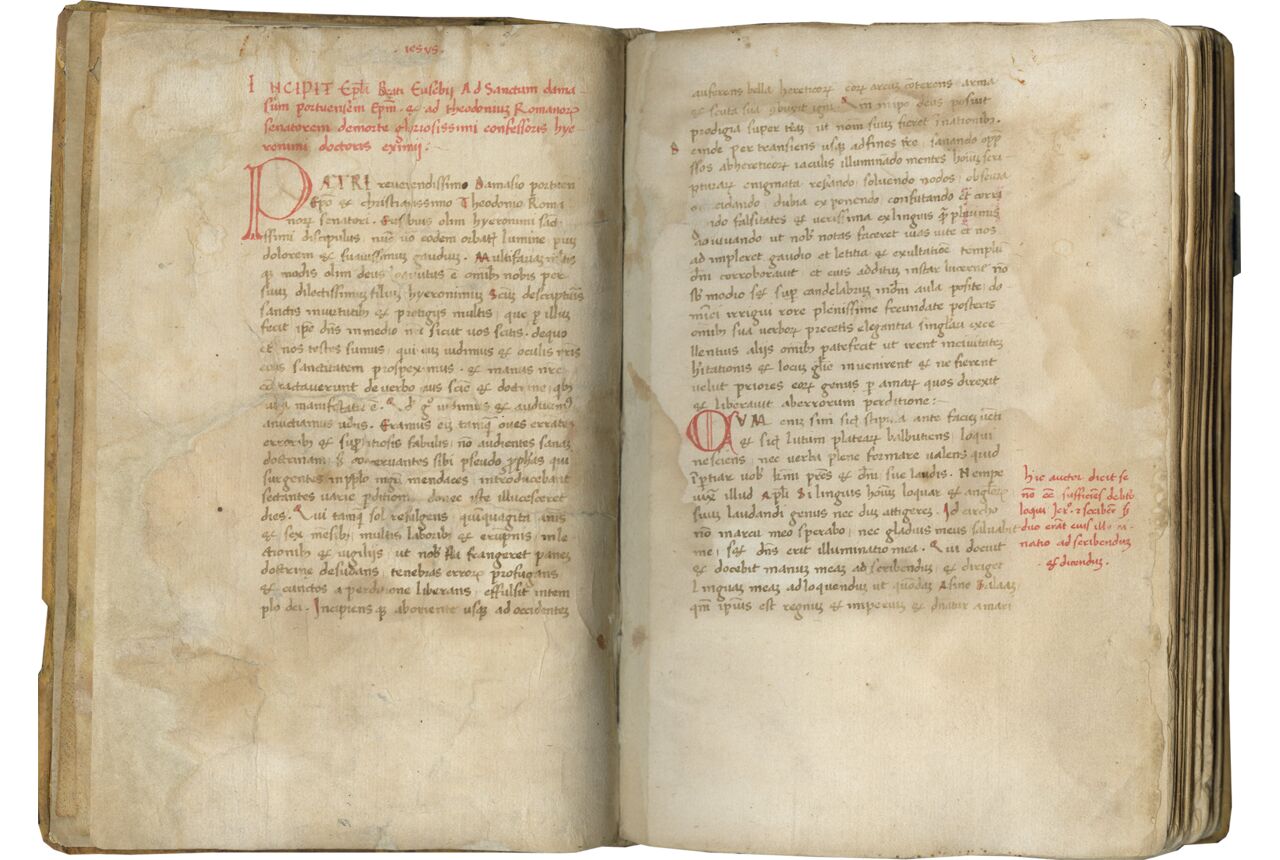 · iesvs ·
INCIPIT Epl̄a Beati Eusebij Ad Sanctum dama
sum portuensem Ep̄m · & ad theodonium Romanoꝝ
senatorem demorte gloriosissimi confessoris hye
ronimi doctoris eximij :
PATRI reverendissimo Damasio portuen
Ep̄o & christianissimo Theodonio Roma
noꝝ senatori · Eusebius olim hyeronimi sanct
issimi discipulus, nūc v̄o eodem orbatꝰ lumine piuȝ
dolorem & suavissimuȝ gaudiuȝ · Multifariaȝ
modis olim deus locutus ē om̄ibꝰ nobis per
suuȝ dilectissimuȝ filiuȝ hyeronimuȝ
sanctis invirtutibꝰ & prodigijs multis, que p̱ illuȝ
fecit ip̄e dn̄s inmedio n̄ri sicut vos scitis · dequo
et nos testes sumus, qui euȝ vidimus & oculis n̄ris
eius sanctitatem prospeximus · & manus n̄re
contractaverunt deverbo eius scīe & doctrine,
vita manifestata ē · & audivimꝰ
anuctiamus vobis · Eramus eiȝ tanqȝ oves errates
erroribꝰ & supstitiosis fabulis, nō audientes sanaȝ
doctrinam, coacervantes sibi pseudo p̱phas qui
surgentes inp̱plo mgr̄i mendaces introducebant
sectantes varie p̱ditioni, donec iste illucesceret
dies · Qui tamqȝ sol refulgens, quiquagita anis
& sex mesibꝰ, multis laboribꝰ & erupnis, inle
ctionibꝰ & vigilijs ut nob̄ frangeret paneȝ
doctrine desudans, tenebras erroꝝ profugans
& cunctos a perditione liberans, effulsit intem
plo dei · Incipiens qȝ aboriente usqȝ ad occidenteȝ
auferens bella hereticoꝝ coꝝ arcuȝ cōterens arma
& scuta sua cōbuxit igni · In ip̄o deus posuit
prodigia super trā̄ ut nom̄ suuȝ fieret ī nationibꝰ ·
Deinde per transiens usqȝ adfines tr̄e, sanando opp̱
ssos abhereticoꝝ iaculis illuminādo mentes hoīuȝ scri
pturaꝝ enigmata reserando, solvendo nodos, obscura
elucidando, dubia exponendo confutando & corri
gendo falsitates & verissima exlinguis
ut nob̄ notas faceret vias vite et nos
adimpleret gaudio et letitia & exultatiōe templuȝ
dn̄i corroboravit et eius adituȝ instar lucerne nō
sb̄ modio sȝ sup̱ candelabruȝ indn̄i aula posite, do
mici irrigui rore plenissime fecundate posteris
om̄ibꝰ sua verboꝝ p̱cetis elegantia singlāri exce
llentius alijs om̄ibꝰ patefecit ut irent incivitateȝ
hītationis & locuȝ glīe invenirent & ne fierent
velut priores eoꝝ genus pravuȝ amaruȝ quos direxit
& liberavit aberrorum perditione :~
QUM eniȝ sim sicut stipula ante facieȝ vēti
& sicut lutum plateaꝝ balbutiens, loqui
nesciens, nec verba plene formare valens quid
īp̱tiar vob̄ kīmi pr̄es & dn̄i sue laudis · Nempe
vix illud Ap̄li Si linguis hoīuȝ loquar & angeloꝝ
suuȝ laudandi genus nec duȝ attigereȝ · Id circho
nō inarcu meo sperabo, nec gladius meus salvabit
me, sȝ dn̄s erit illuminatio mea · Qui docuit
& docebit manuȝ meaȝ ad scribenduȝ & diriget
linguaȝ meaȝ adloquenduȝ ut quōdaȝ Asine Balaaȝ
qm̄ ipsius est regnuȝ & imperiuȝ & dn̄atur amari
hic auctor dicit se
nō ee sufficiēs debito
loqui Jer̄o · & scribere p̱
duo erāt eius illumi-
natio ad scribenduȝ
· & dicenduȝ ·